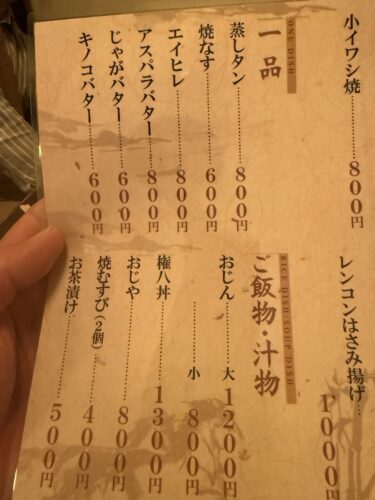 小イワシ焼………800円
一品
ONE DISH
蒸しタン………800円
焼なす………600円
エイヒレ………800円
アスパラバター………800円
じゃがバター………600円
キノコバター………600円
レンコンはさみ揚げ…1000円
ご飯物・汁物
RICE DISH/SOUP DISH
おじん………大 1200円
………小 800円
権八丼………1300円
おじや………800円
焼むすび(2個)………400円
お茶漬け………500円